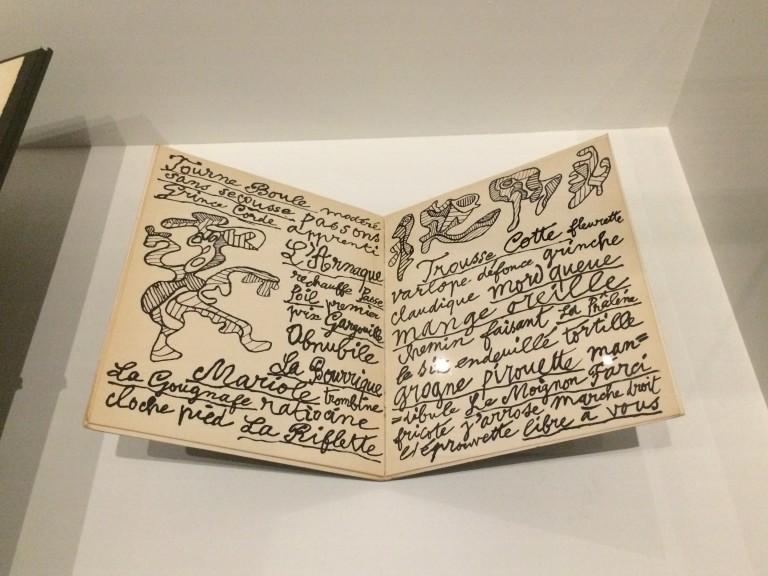 Tourne Boule modéré
sans secousse passons
Grince Corde apprenti
L'Arnaque
réchauffe Passe
Poil premier
prix Gargouille
Obnubile
La Bourrique
Mariole trombine
La Gougnafe ratiocine
cloche pied La Riflette
Trousse Cotte fleurette
varlope défonce grinche
claudique mordgueue
mange oreille
chemin faisant La Phalène
le endeuillé tortille
grogne pirouette man=
=dibule Le Moignon Farci
fricote j'arrose marche droit
l'éprouvette libre à vous